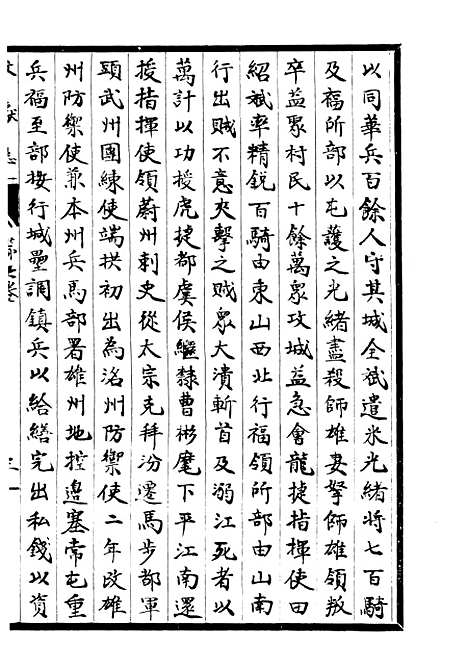 以同華兵百餘人守其城全斌遣米光緒將七百騎
及福所部以屯護之光緒盡殺師雄妻孥師雄領叛
卒益聚村民十餘萬衆攻城益急會龍捷指揮使田
紹斌率精銳百騎由東山西北行福領所部由山南
行出賊不意夾擊之賊衆大潰斬首及溺江死者以
萬計以功授虎捷都虞侯繼隸曹彬麾下平江南還
授指揮使領蔚州刺史從太宗克幷汾遷馬步都軍
頭武州團練使端拱初出為洺州防禦使二年改雄
州防禦使兼本州兵馬部署雄州地控邊塞常屯重
兵福至部按行城壘調鎮兵以給繕完出私錢以資